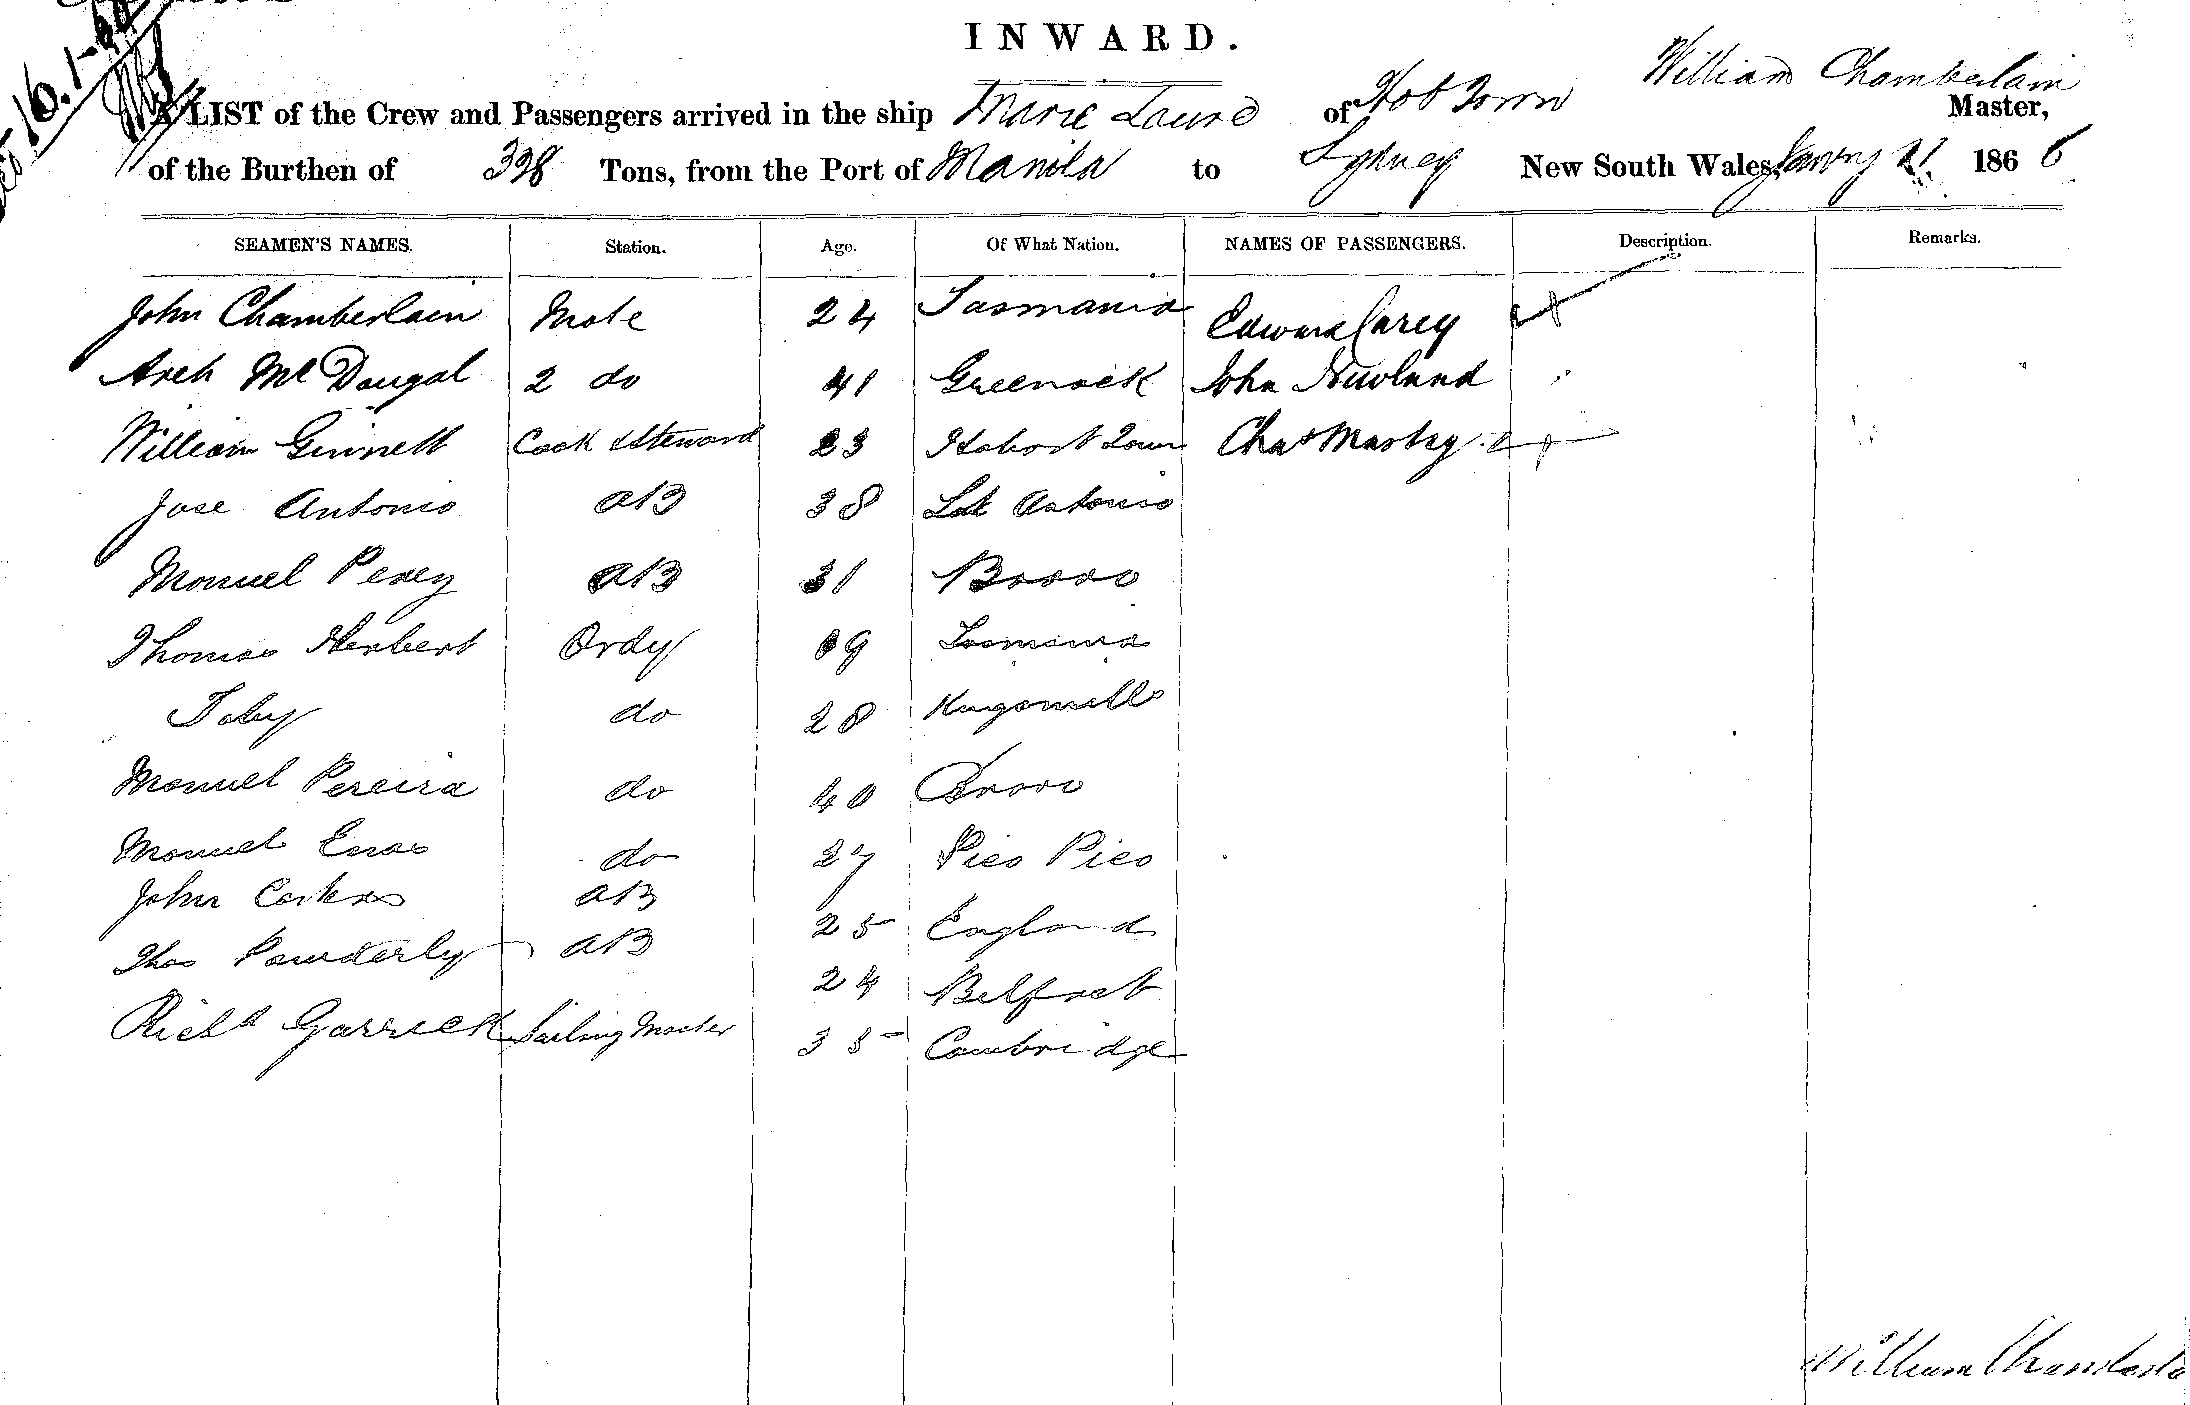 INWARD.
A LIST of the Crew and Passengers arrived in the ship Marie Laure of Hob Town William Chamberlain Master,
of the Burthen of 338 Tons, from the Port of Manila to Sydney New South Wales, 21 1866
SEAMEN'S NAMES. Station. Age. Of What Nation. NAMES OF PASSENGERS. Description. Remarks.
John Chamberlain Mate 24 Tasmania Edward Carey
Arch McDougal 2 do 41 Greenock John Newland
William Ginnell Cook & Steward 23 Hobart Town Chas
Jose Antonio AB 38 Antonio
Manuel Perey AB 31 Bravo
Thomas Herbert Ordy 19 Tasmania
Toby do 28
Manuel Pereira do 40 Bravo
Manuel Enos do 27 Pico Pico
John AB 25 England
Thos Powderly AB 24 Belfast
Richd Garrick Sailing Master 35 Cambridge
William Chamberlain